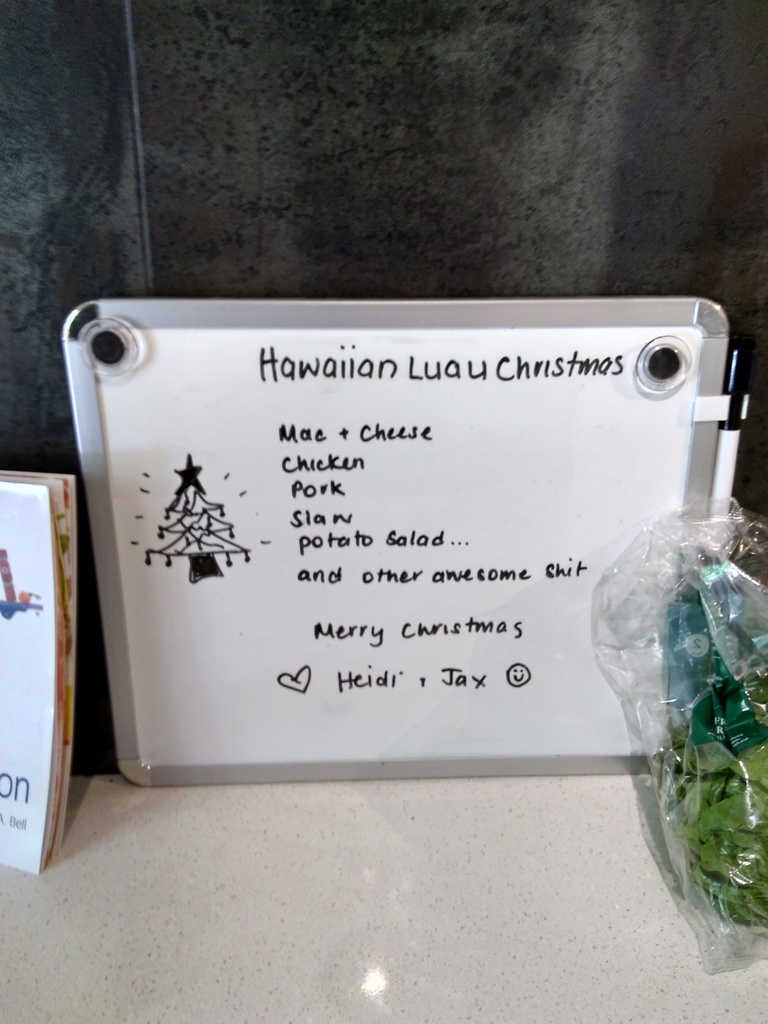 Hawaiian Luau Christmas
Mac + Cheese
Chicken
Pork
Slaw
potato salad...
and other awesome shit
Merry Christmas
♡ Heidi + Jax ☺
on
A. Bell
2